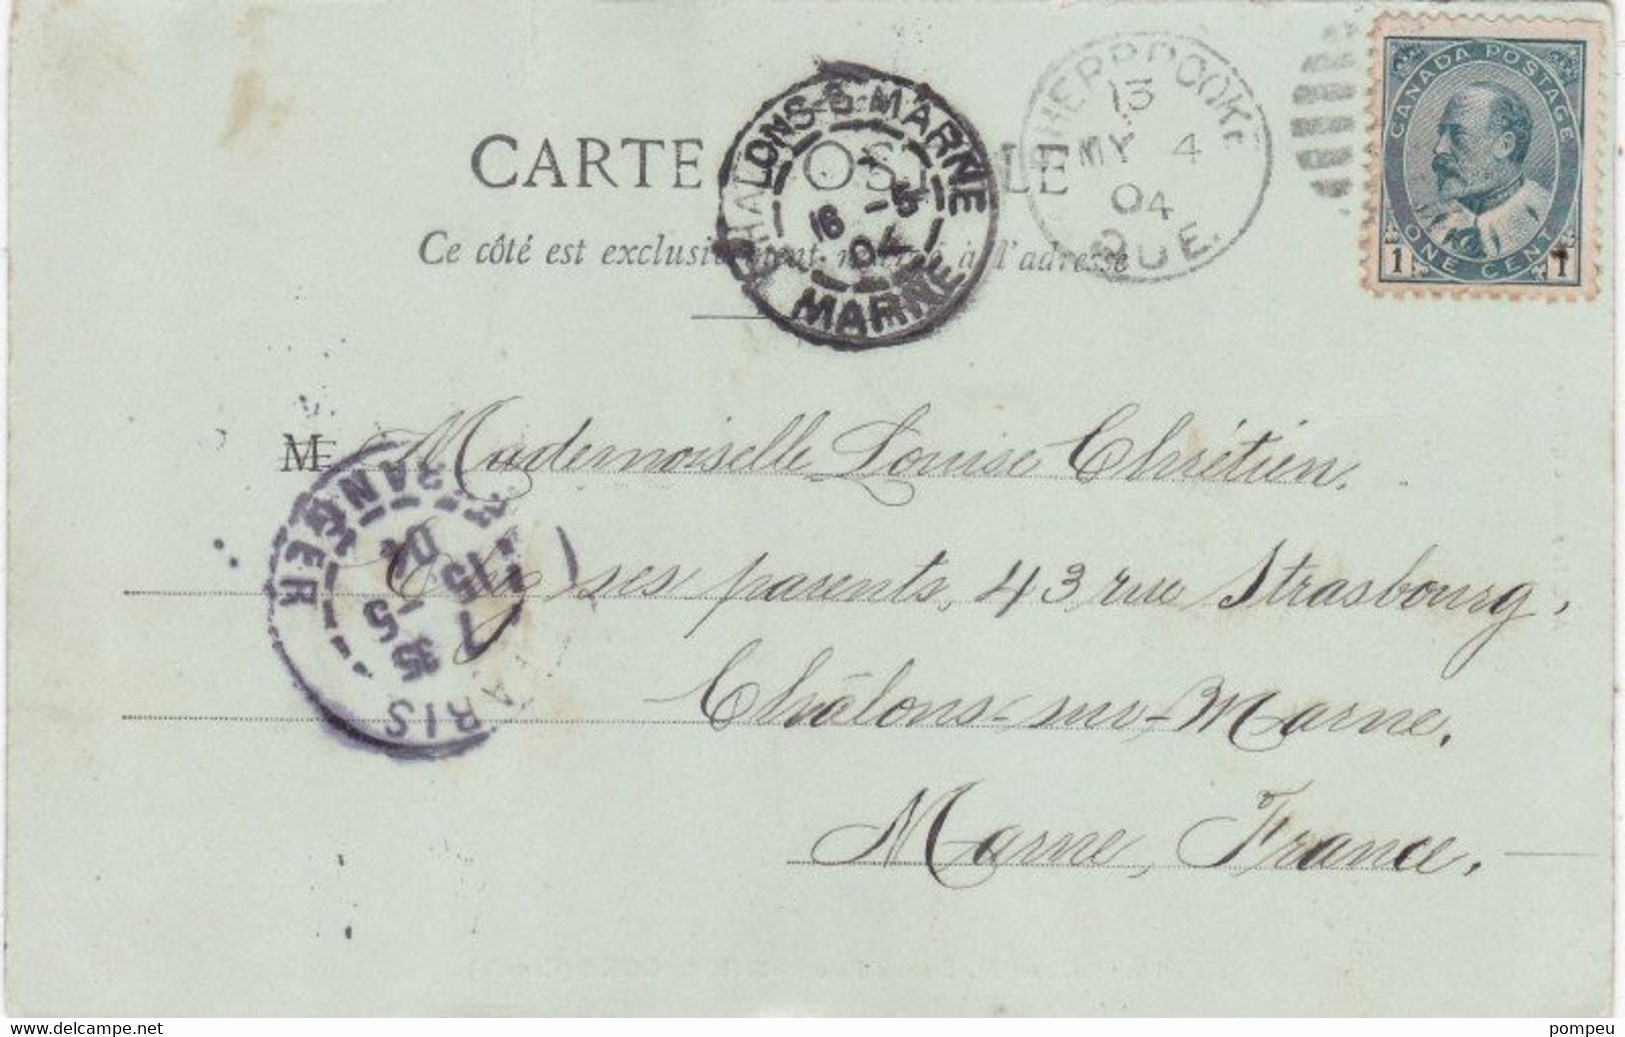 CARTE POSTALE
Ce côté est exclusivement réservé à l'adresse
CHALONS-S-MARNE
16 -5
04
MARNE
SHERBROOKE
13
MY 4
04
QUE.
CANADA POSTAGE
1 ONE CENT 1
M Mademoiselle Louise Chrétien,
Chez ses parents, 43 rue Strasbourg,
Châlons-sur-Marne,
Marne, France.
PARIS
ETRANGER
15
-5
04
www.delcampe.net
pompeu